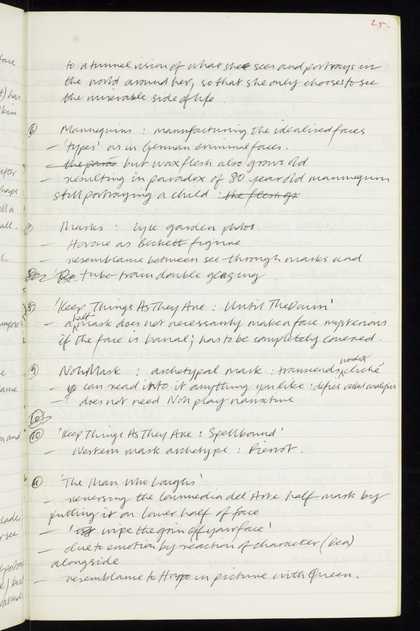 25.
to a tunnel vision of what she sees and portrays in
the world around her, so that she only chooses to see
the miserable side of life.
⑥ Mannequins : manufacturing the idealised faces
- 'types' as in German criminal faces.
- but wax flesh also grows old
- resulting in paradox of 80 year old mannequin
still portraying a child :
Masks : Lyle garden photos
- Horace as Beckett figurine
- resemblance between see-through masks and
tube train double glazing
⑧ 'Keep Things As They Are : Until The Dawn'
- a half mask does not necessarily make a face mysterious
if the face is banal; has to be completely covered.
⑨ Noh Mask : archetypal mask : transcends modern cliché
- can read into it anything you like : defies verbal analysis
- does not need Noh play narrative
⑩ 'Keep Things As They Are : Spellbound'
- Western mask archetype : Pierrot.
⑪ 'The Man Who Laughs'
- reversing the Commedia del Arte half mask by
putting it on lower half of face
- 'wipe the grin off your face'
- due to emotion by reaction of character (Dea)
alongside
- resemblance to in picture with Queen.